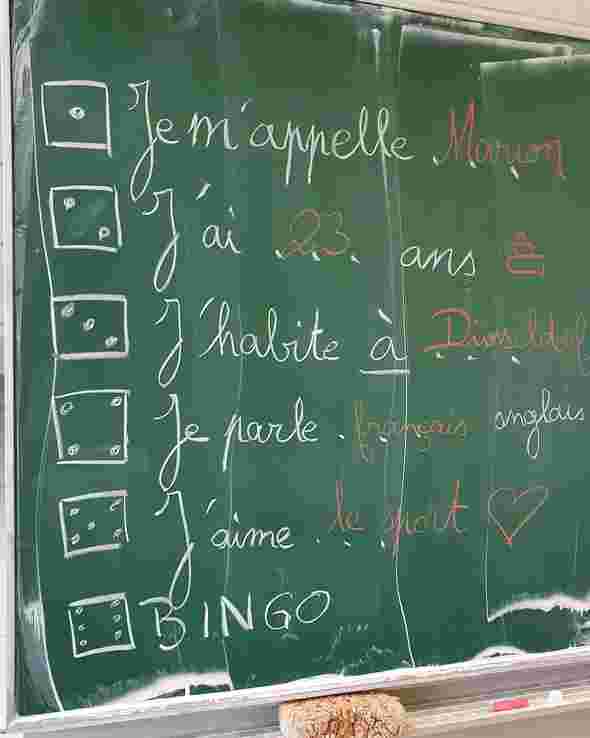 Je m'appelle Marion
J'ai 23 ans
J'habite à
Je parle français anglais
J'aime le sport
BINGO